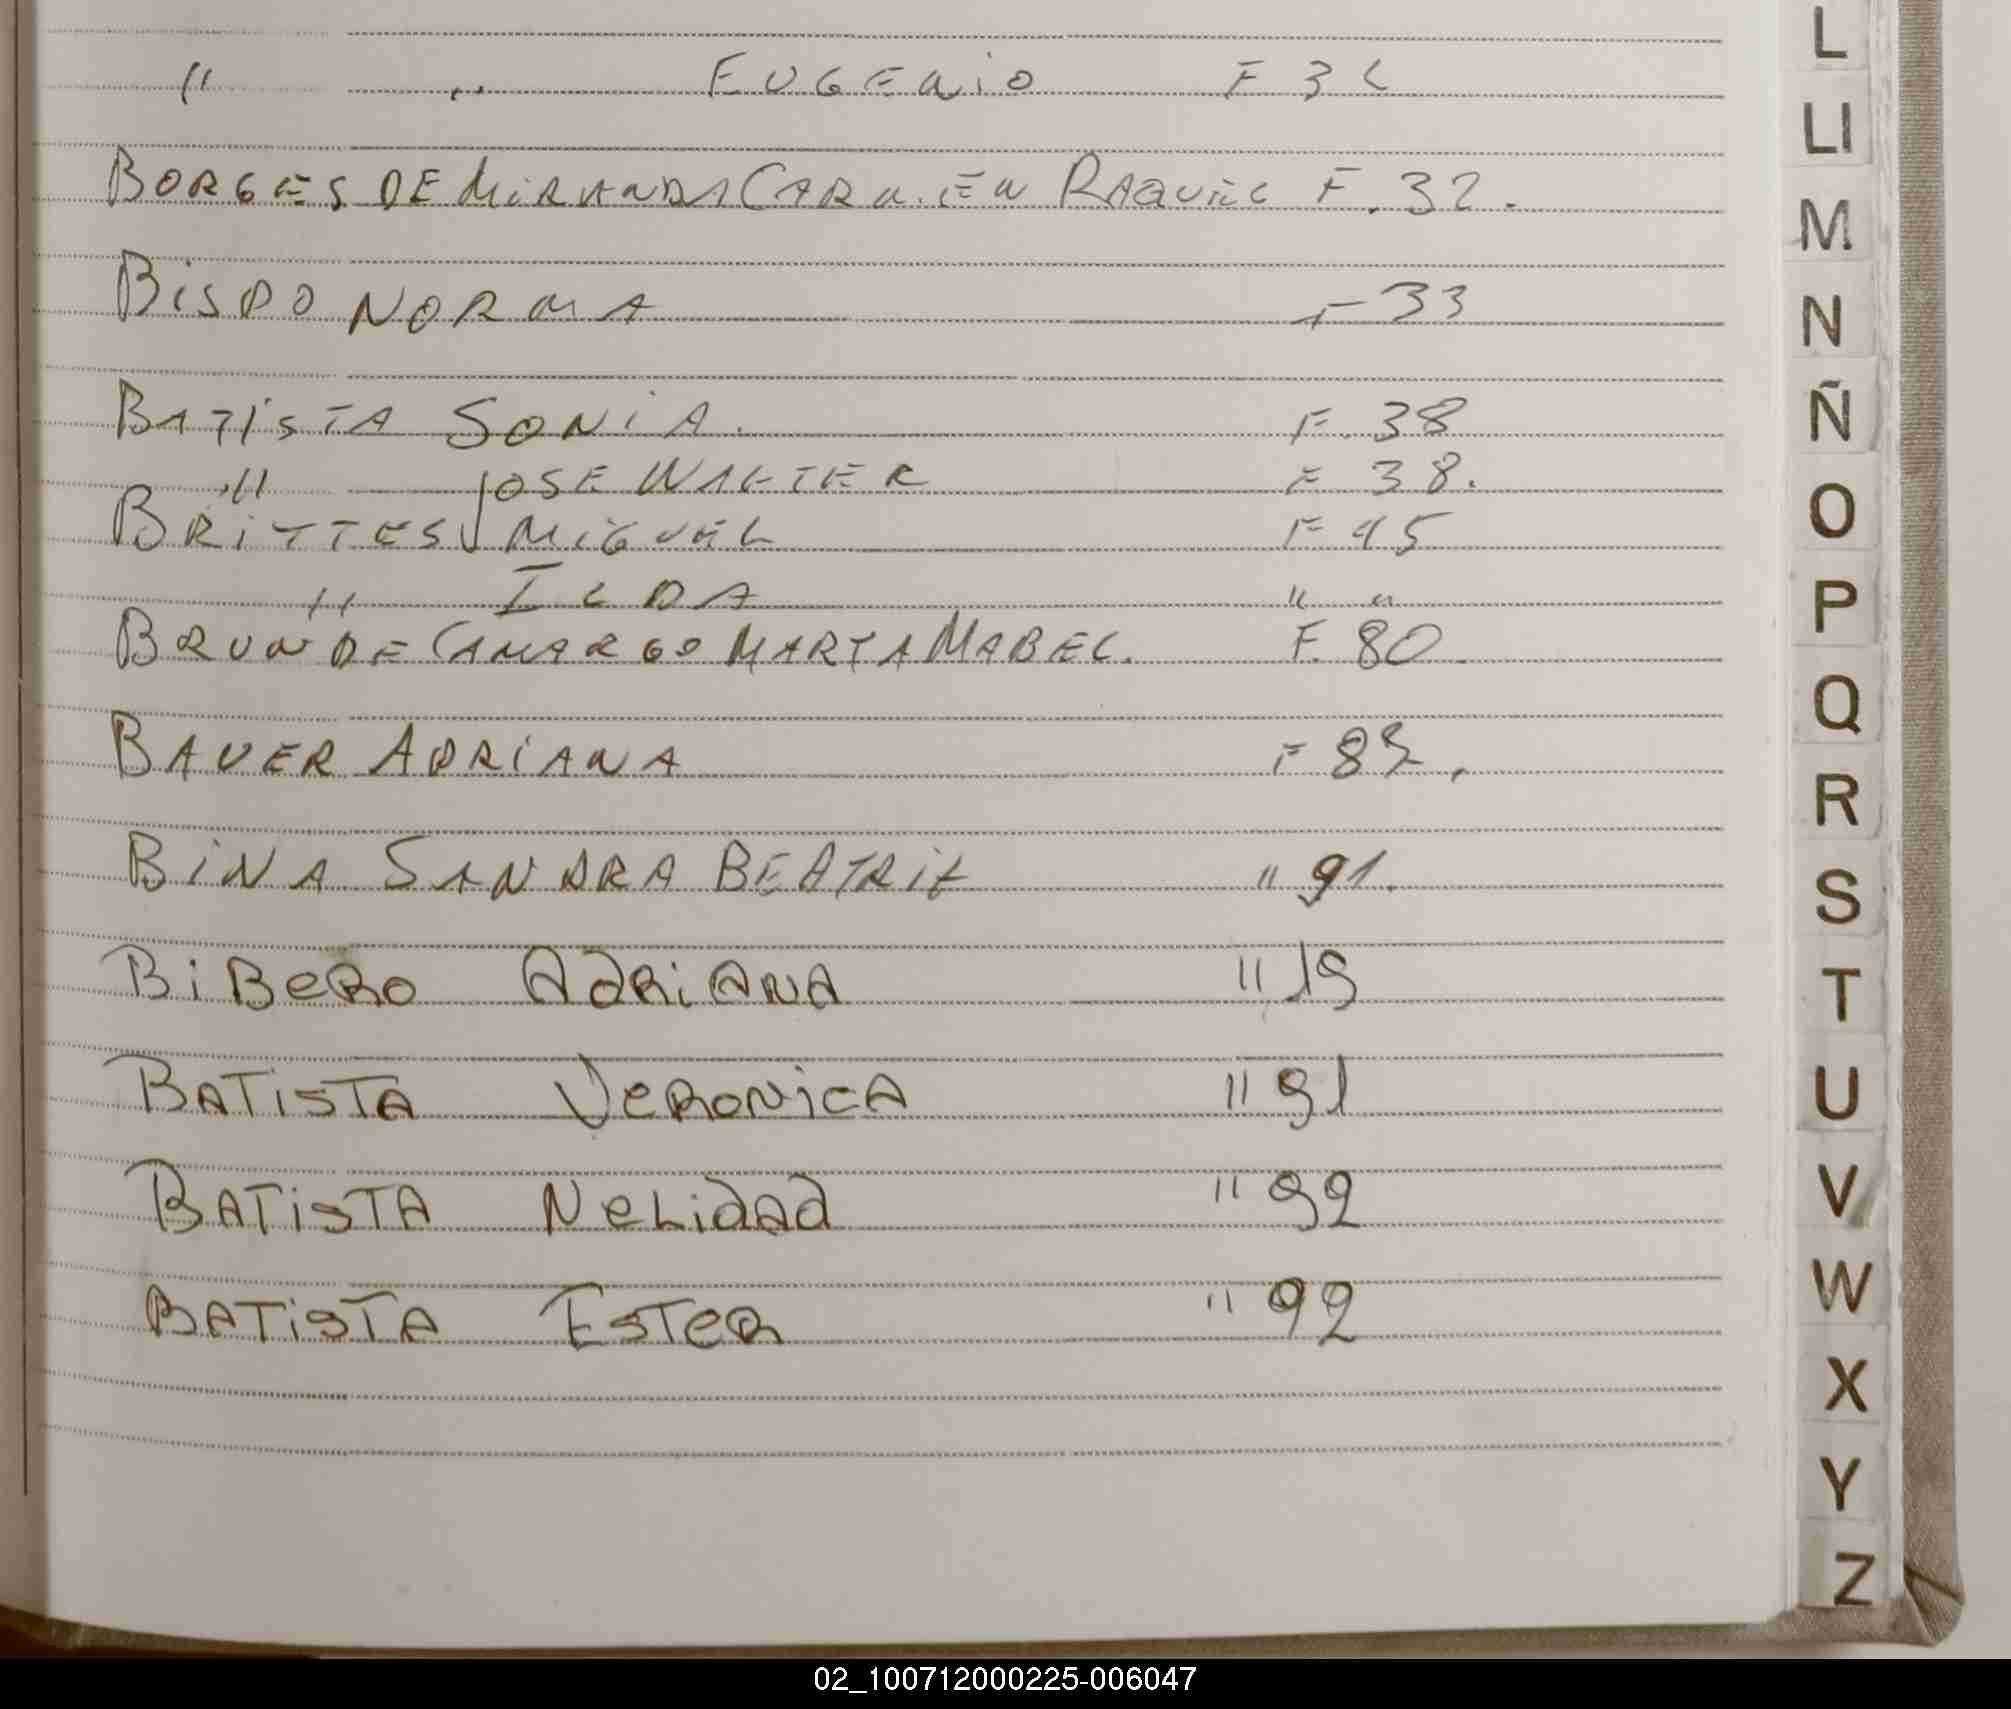 " " EUGENIO F 32
BORGES DE MIRANDA CARMEN RAQUEL F. 32.
BISPO NORMA F 33
BATISTA SONIA. F. 38
" JOSE WALTER F 38.
BRITTES MIGUEL F 45
" ILDA " "
BRUN DE CAMARGO MARTA MABEL. F. 80
BAUER ADRIANA F 89.
BINA SANDRA BEATRIZ " 91.
BiBeRO ADRIANA " 19
BATISTA VERONICA " 91
BATISTA NELIDAD " 92
BATISTA ESTER " 92
L
Ll
M
N
Ñ
O
P
Q
R
S
T
U
V
W
X
Y
Z
02_100712000225-006047